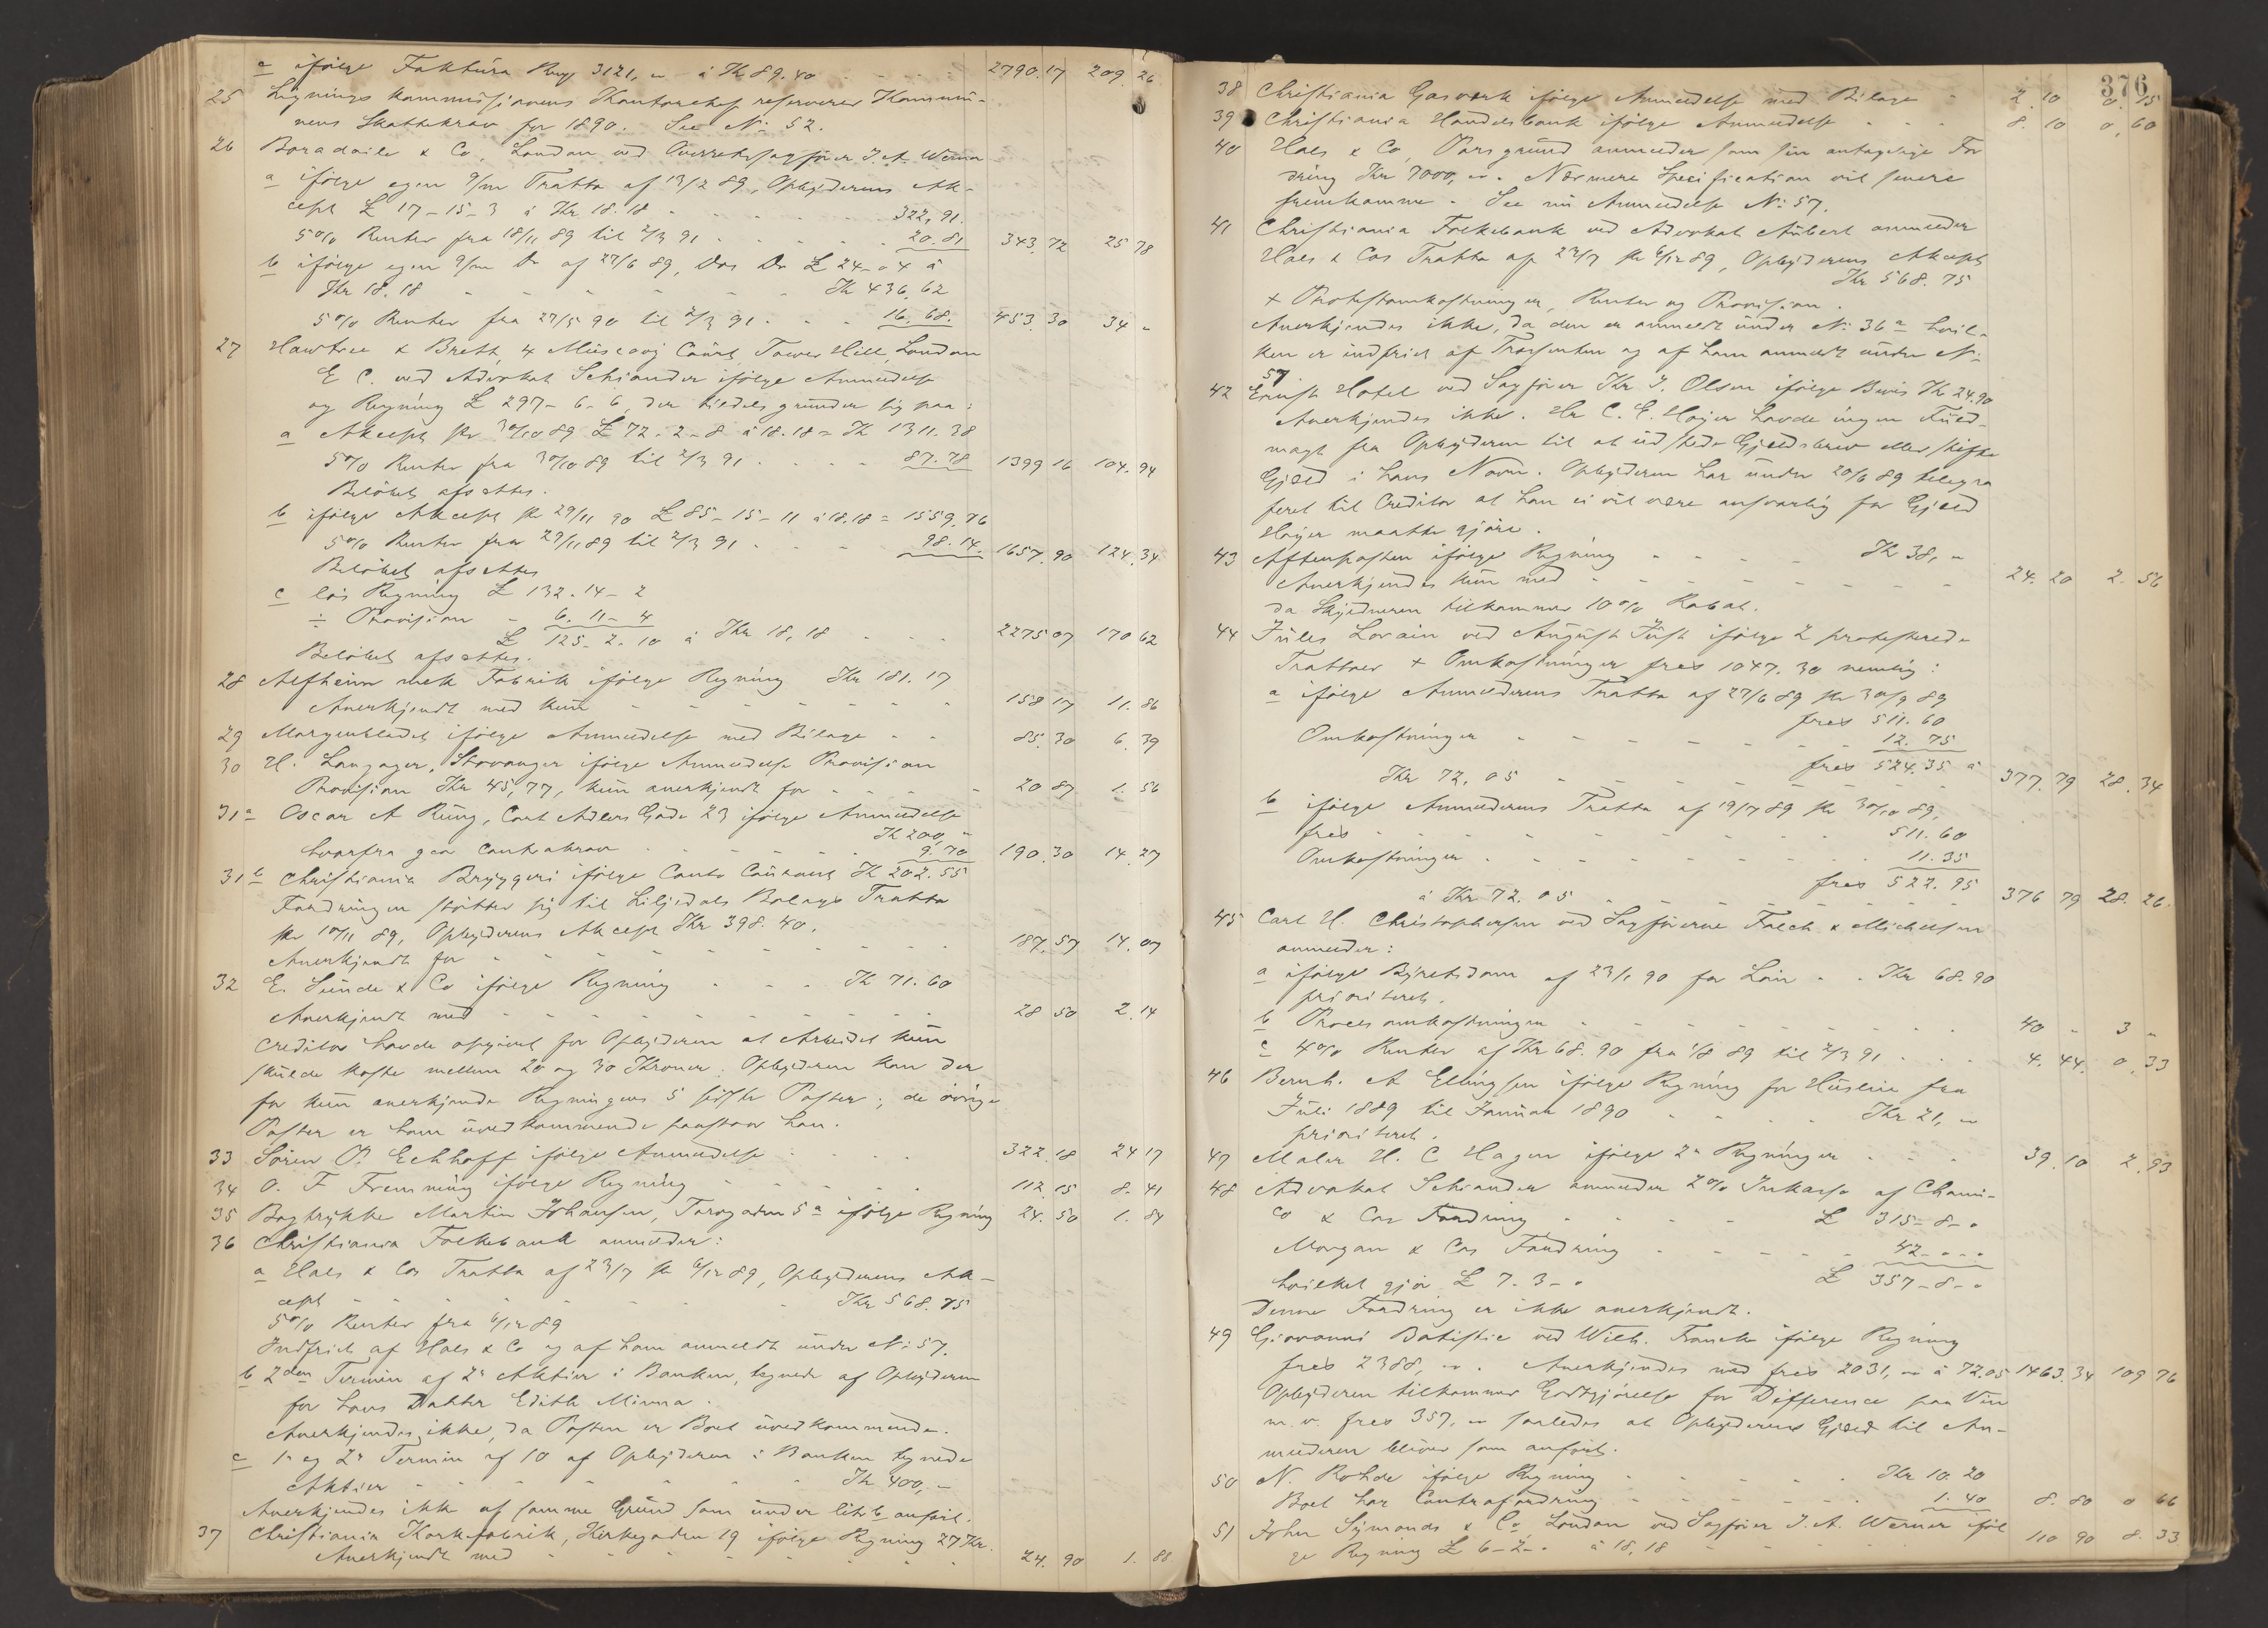 c ifölge Faktura Rmk 3121,- à Kr 89.40 2790.17 209.26
25 Lignings kommissionens Kontorchef reserverer Kommu-
nens Skattekrav for 1890. See No 52.
26 Boradaile & Co, London ved Overretssagförer J. A. Werner
a ifölge egen 9/m Tratta af 13/2 89, Opbyderens Ak-
cept £ 17-15-3 à Kr 18.18 322.91.
5% Renter fra 18/11 89 til 2/3 91 20.81 343.72 25 78
b ifölge egen 9/m Do af 27/6 89, Dos Do £ 24-0 4 à
Kr 18.18 Kr 436.62
5% Renter fra 27/5 90 til 2/3 91 16.68. 453.30 34 -
27 Hawtree & Brett, 4 Muscovy Court Tower Hill, London
E C. ved Advokat Schiander ifölge Anmeldelse
og Regning £ 297-6-6, der tildels grunder sig paa:
a Akcept pr 30/10 89 £ 72-2-8 à 18.18 = Kr 1311.38
5% Renter fra 30/10 89 til 2/3 91 87.78 1399 16 104.94
Belöbet afsættes.
b ifölge Akcept pr 29/11 90 £ 85-15-11 à 18.18 = 1559.76
5% Renter fra 29/11 89 til 2/3 91 98.14. 1657.90 124.34
Belöbet afsættes
c lös Regning £ 132-14-2
÷ Provision - 6-11-4
£ 125-2-10 à Kr 18.18 2275 07 170 62
Belöbet afsættes.
28 Alfheim mek Fabrik ifölge Regning Kr 181.17
Anerkjendt med kun 158 17 11.86
29 Morgenbladet ifölge Anmeldelse med Bilage 85.30 6.39
30 H. Langager, Stavanger ifölge Anmeldelse Provision
Provision Kr 45,77, kun anerkjendt for 20 87 1.56
31a Oscar A Ring, Cort Adlers Gade 23 ifölge Anmeldelse
Kr 200,-
hvorfra gaar Contrakrav 9.70 190.30 14.27
31b Christiania Bryggeri ifölge Conto Courant Kr 202.55
Fordringen stötter sig til Liljedals Bolags Tratta
pr 10/11 89, Opbyderens Akcept Kr 398.40.
Anerkjendt for 187.57 14.07
32 E. Sunde & Co ifölge Regning Kr 71.60
Anerkjendt med 28 50 2.14
Creditor havde opgivet for Opbyderen at Arbeidet kun
skulde koste mellem 20 og 30 Kroner. Opbyderen kan der
for kun anerkjende Regningens 5 sidste Poster; de övrige
Poster er ham uvedkommende paastaar han.
33 Sören P. Eckhoff ifölge Anmeldelse 322.18 24 17
34 O. F Fremming ifölge Regning 112.15 8.41
35 Bogtrykker Martin Johansen, Torvgaden 5a ifölge Regning 24.50 1.84
36 Christiania Folkebank anmelder:
a Haes & Cos Tratta af 23/7 pr 6/12 89, Opbyderens Ak-
cept Kr 568.75
5% Renter fra 6/12 89
Indfriet af Haes & Co og af ham anmeldt under No 57.
b 2den Termin af 2 Aktier i Banken, tegnede af Opbyderen
for hans Datter Edith Minna.
Anerkjendes ikke, da Posten er Boet uvedkommende.
c 1e og 2e Termin af 10 af Opbyderen i Banken tegnede
Aktier Kr 400,-
Anerkjendes ikke af samme Grund som under litr b anfört.
37 Christiania Korkfabrik, Kirkegaden 19 ifölge Regning 27 Kr.
Anerkjendt med 24.90 1.88
376
38 Christiania Gasværk ifölge Anmeldelse med Bilage 2.10 0.15
39 Christiania Handelsbank ifölge Anmeldelse 8.10 0,60
40 Haes & Co, Porsgrund anmelder som sin antagelige For
dring Kr 7000,-. Nærmere Specification vil senere
fremkomme. See nu Anmeldelse No 57.
41 Christiania Folkebank ved Advokat Aubert anmelder
Haes & Cos Tratta af 23/7 pr 6/12 89, Opbyderens Akcept
Kr 568.75
+ Protestomkostninger, Renter og Provision.
Anerkjendes ikke, da den er anmeldt under No 36a hvil-
ken er indfriet af Trassenten og af ham anmeldt under No
57
42 Ernst Hotel ved Sagförer Kr J. Olsen ifölge Bevis Kr 24.90
Anerkjendes ikke. Hr C. E. Höyer havde ingen Fuld-
magt fra Opbyderen til at udstede Gjeldsbrev eller stifte
Gjæld i hans Navn. Opbyderen har under 20/6 89 telegra
feret til Creditor at han ei vil være ansvarlig for Gjæld
Höyer maatte gjöre.
43 Aftenposten ifölge Regning Kr 38,-
Anerkjendes kun med 24.20 2.56
da Skyldneren tilkommer 10% Rabat.
44 Jules Lorain ved August Just ifölge 2 protesterede
Trattaer + Omkostninger frcs 1047.30 nemlig:
a ifölge Anmelderens Tratta af 27/6 89 pr 30/9 89
frcs 511.60
Omkostninger 12.75
frcs 524.35 à
Kr 72.05 377.79 28.34
b ifölge Anmelderens Tratta af 19/7 89 pr 30/10 89,
frcs 511.60
Omkostninger 11.35
frcs 522.95
à Kr 72.05 376 79 28.26.
45 Carl H. Christophersen ved Sagförerne Falch & Michelsen
anmelder:
a ifölge Byretsdom af 23/1 90 for Lön Kr 68.90
prioriteret.
b Procesomkostningen 40 - 3 -
c 4% Renter af Kr 68.90 fra 1/8 89 til 2/3 91 4.44. 0.33
46 Bernh. A Ellingsen ifölge Regning for Husleie fra
Juli 1889 til Januar 1890 Kr 21,-
prioriteret.
47 Maler H. C Hagen ifölge 2 Regninger 39.10 2.93
48 Advokat Schiander anmelder 2% Inkasso af Chami-
co & Cos Fordring £ 315-8-0
Morgan & Cos Fordring 42-0-0
hvilket gjör £ 7.3-0 £ 357-8-0
Denne Fordring er ikke anerkjendt.
49 Giovanni Batistic ved Wilh. Franck ifölge Regning
frcs 2388,-. Anerkjendes med frcs 2031,- à 72.05 1463.34 109 76
Opbyderen tilkommer Godtgjörelse for Difference paa Vin
m. v. frcs 357,- saaledes at Opbyderens Gjæld til An-
melderen bliver som anfört.
50 N. Rohde ifölge Regning Kr 10.20
Boet har Contrafordring 1.40 8.80 0 66
51 John Symonds & Co, London ved Sagförer J. A. Werner iföl
ge Regning £ 6-2-0 à 18,18 110 90 8.33